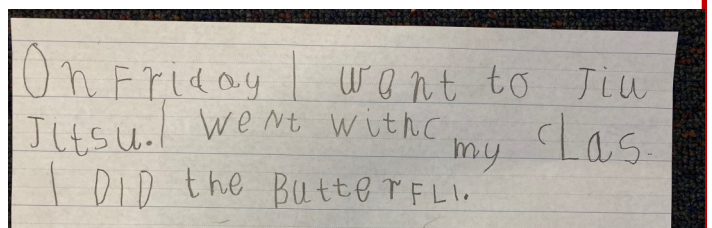 On Friday I went to Jiu
Jitsu. I weNt withc my cLas.
I DID the ButterFLI.